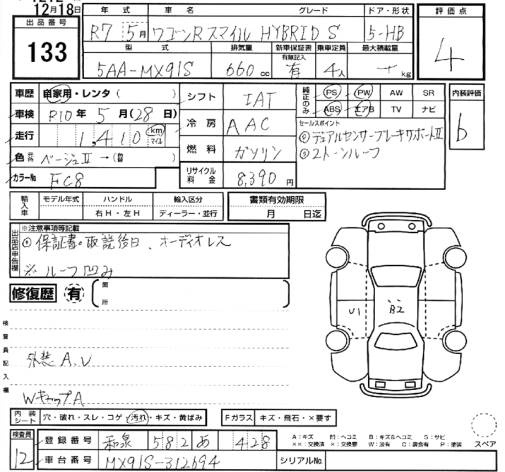 12月18日
出品番号 133
年式 車名 グレード ドア・形状 評価点
R7 5月 ワゴンRスマイル HYBRID S 5-HB
4
型式 排気量 新車保証書 有限記入 乗車定員 最大積載量
5AA-MX91S 660cc 有 4人 kg
車歴 自家用・レンタ( ) シフト IAT 純正のみ PS PW AW SR 内装評価
車検 R10年 5月(28日) ABS エアB TV ナビ b
走行 1,410 km マイル 冷房 AAC セールスポイント
デュアルセンサーブレーキサポートⅡ
2トーンルーフ
色 ベージュⅡ →(替 ) 燃料 ガソリン
カラーNo FC8 リサイクル料金 8,390円
輸入車 モデル年式 ハンドル 輸入区分 書類有効期限
右H・左H ディーラー・並行 月 日迄
※注意事項等記載
出品店申告欄
保証書・取説後日、オーディオレス
※ルーフ凹み
修復歴 有 箇所
検査員記入欄
U1 B2
外装A,U
WキャップA
内装シート 穴・破れ・スレ・コゲ・汚れ・キズ・黄ばみ Fガラス キズ・飛石・×要す
検査員 12 登録番号 和泉 582 あ 428
車台番号 MX91S-312694 シリアルNo
A:キズ M:ヘコミ B:キズ&ヘコミ S:サビ
××:交換済 ×:要交換 W:波有 C:腐食有 P:塗装
スペア